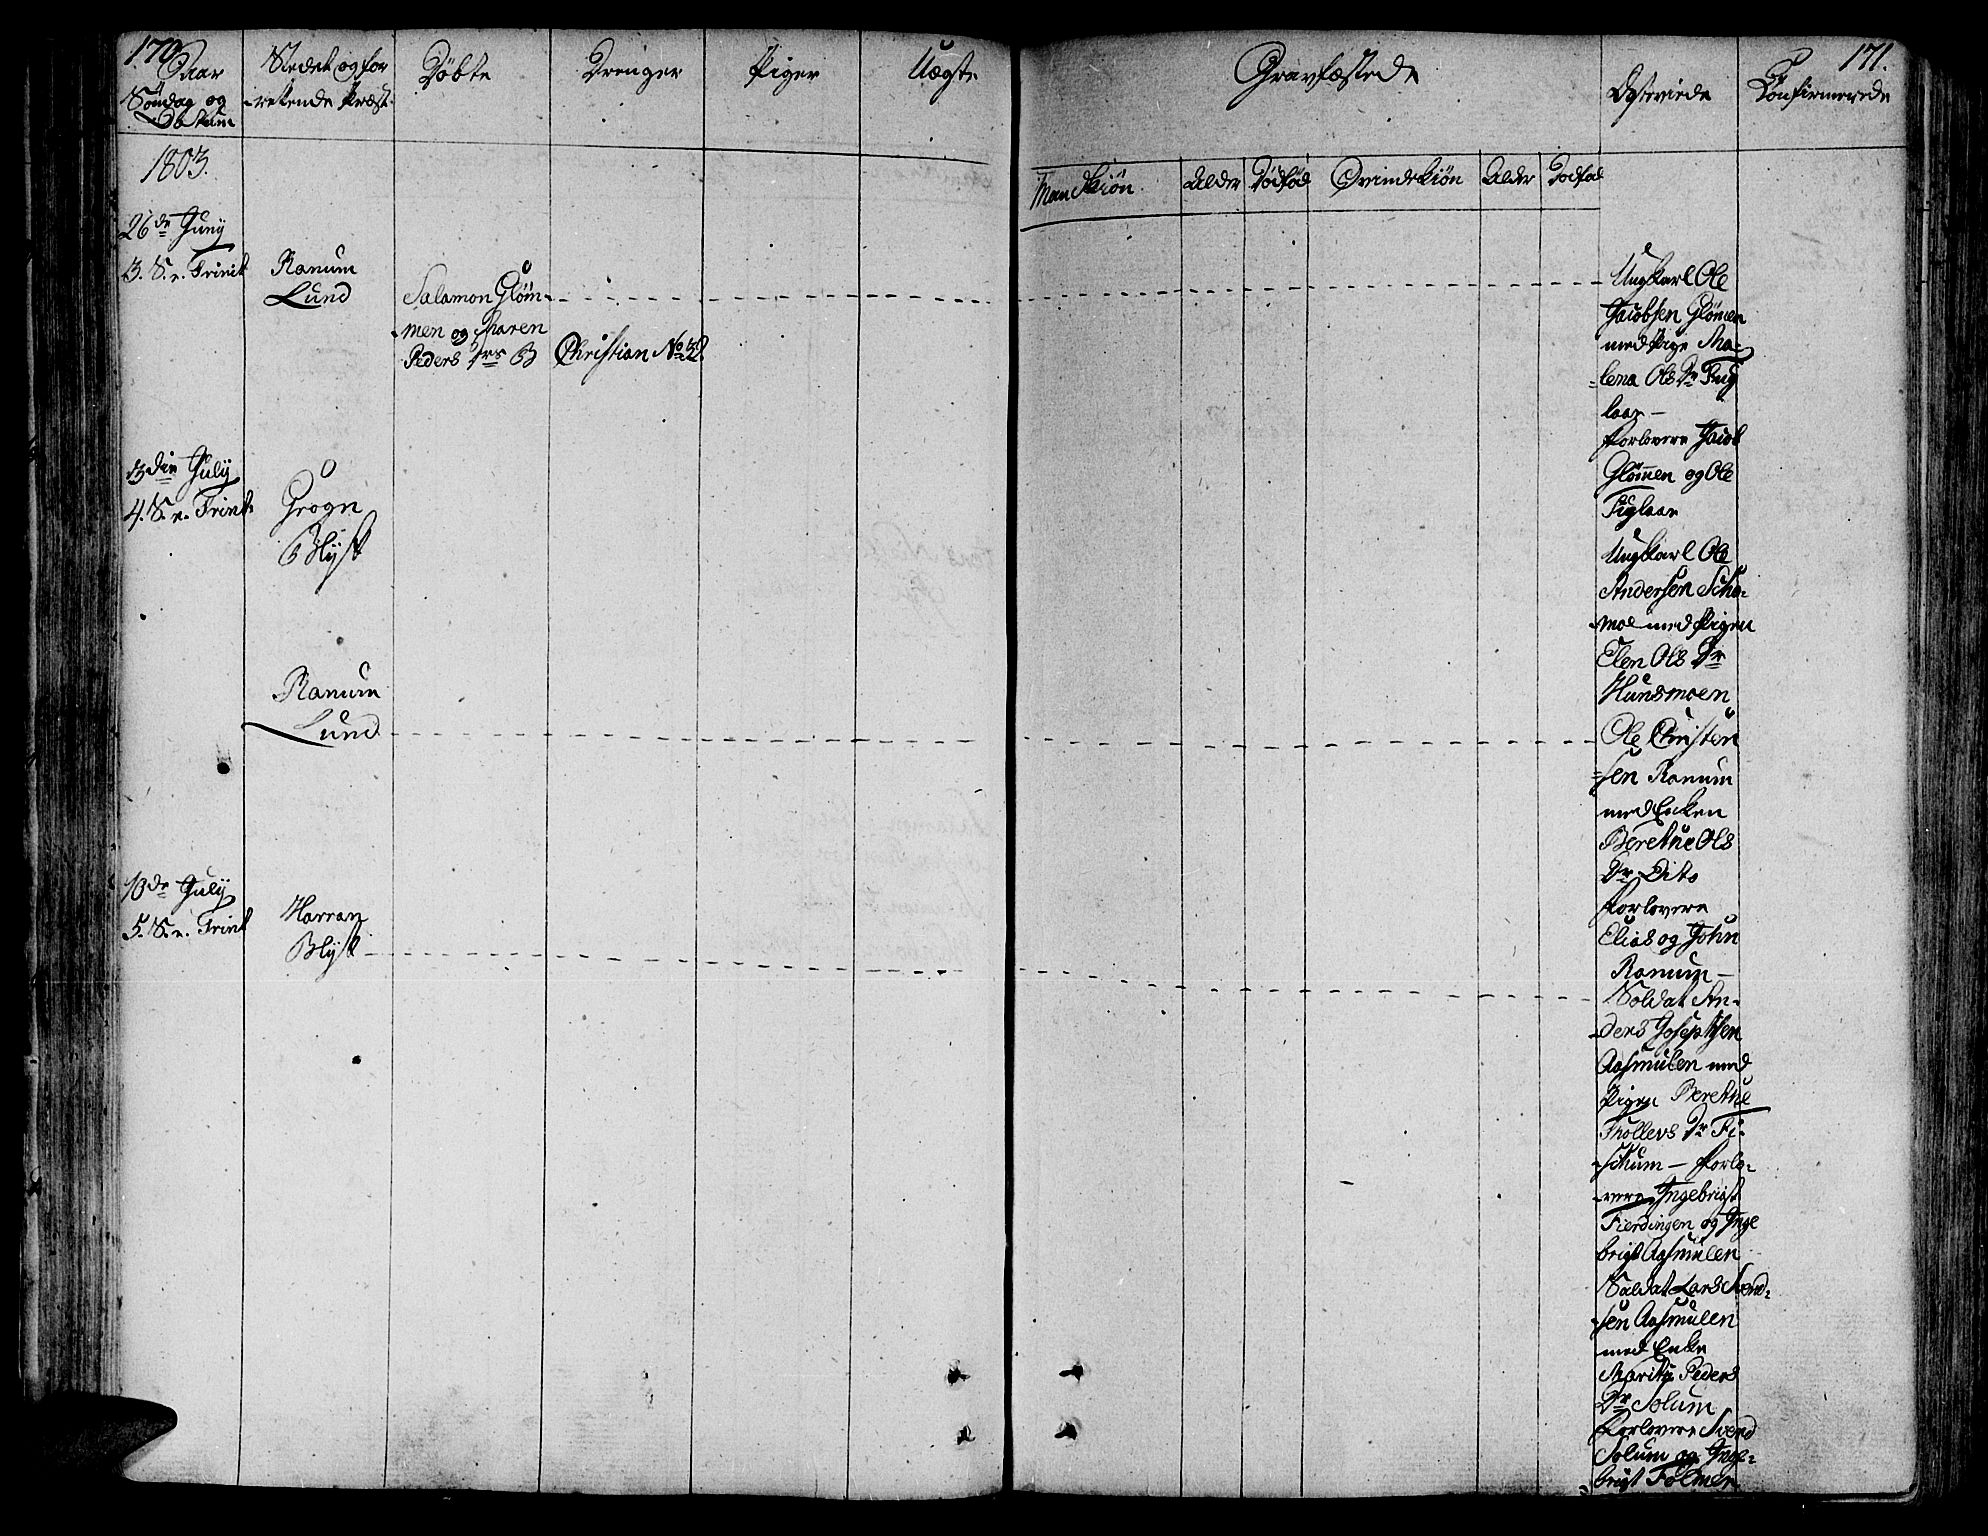 170
171.
Aar
Søndag og
Datum
Stedet og for
-rettende Præst.
Døbte
Drenger
Piger
Uægte
Gravfæstede
Mandkiøn.
Alder
Dødfød
Qvindekiøn
Alder
Dødfød
Egteviede
Confirmerede
1803.
26de Juny
3. S. e. Trinit
Ranum
Lund
Salamon Gløm-
-men og Maren
Peders Drs B
Christian No 32.
Ungkarl Ole
Jacobsen Glømen
med Pige Ma-
=lena Ols Dr Fug
laar -
forlovere Jacob
Glømen og Ole
Fuglaar
3die July
4. S. e. Trinit.
Grogn
Blyst
Ungkarl Ole
Andersen
moe med Pigen
Elen Ols Dr
Hunsmoen
Ranum
Lund
Ole Christen
=sen Ranum
med Enken
Berethe Ols
Dr Dito
forlovere
Elias og John
Ranum -
10de July
5. S. e. Trinit
Harran
Blyst
Soldat An-
-ders Josephsen
Aasmulen med
Pigen Berethe
Trollevs Dr Fi-
-schum - forlo-
-vere Ingebrigt
Fierdingen og Inge
brigt Aasmulen
Soldat Lars Svend-
-sen Aasmulen
med Enke
Marith Peders
Dr Solum
forlovere Svend
Solum og Inge-
brigt Folmer